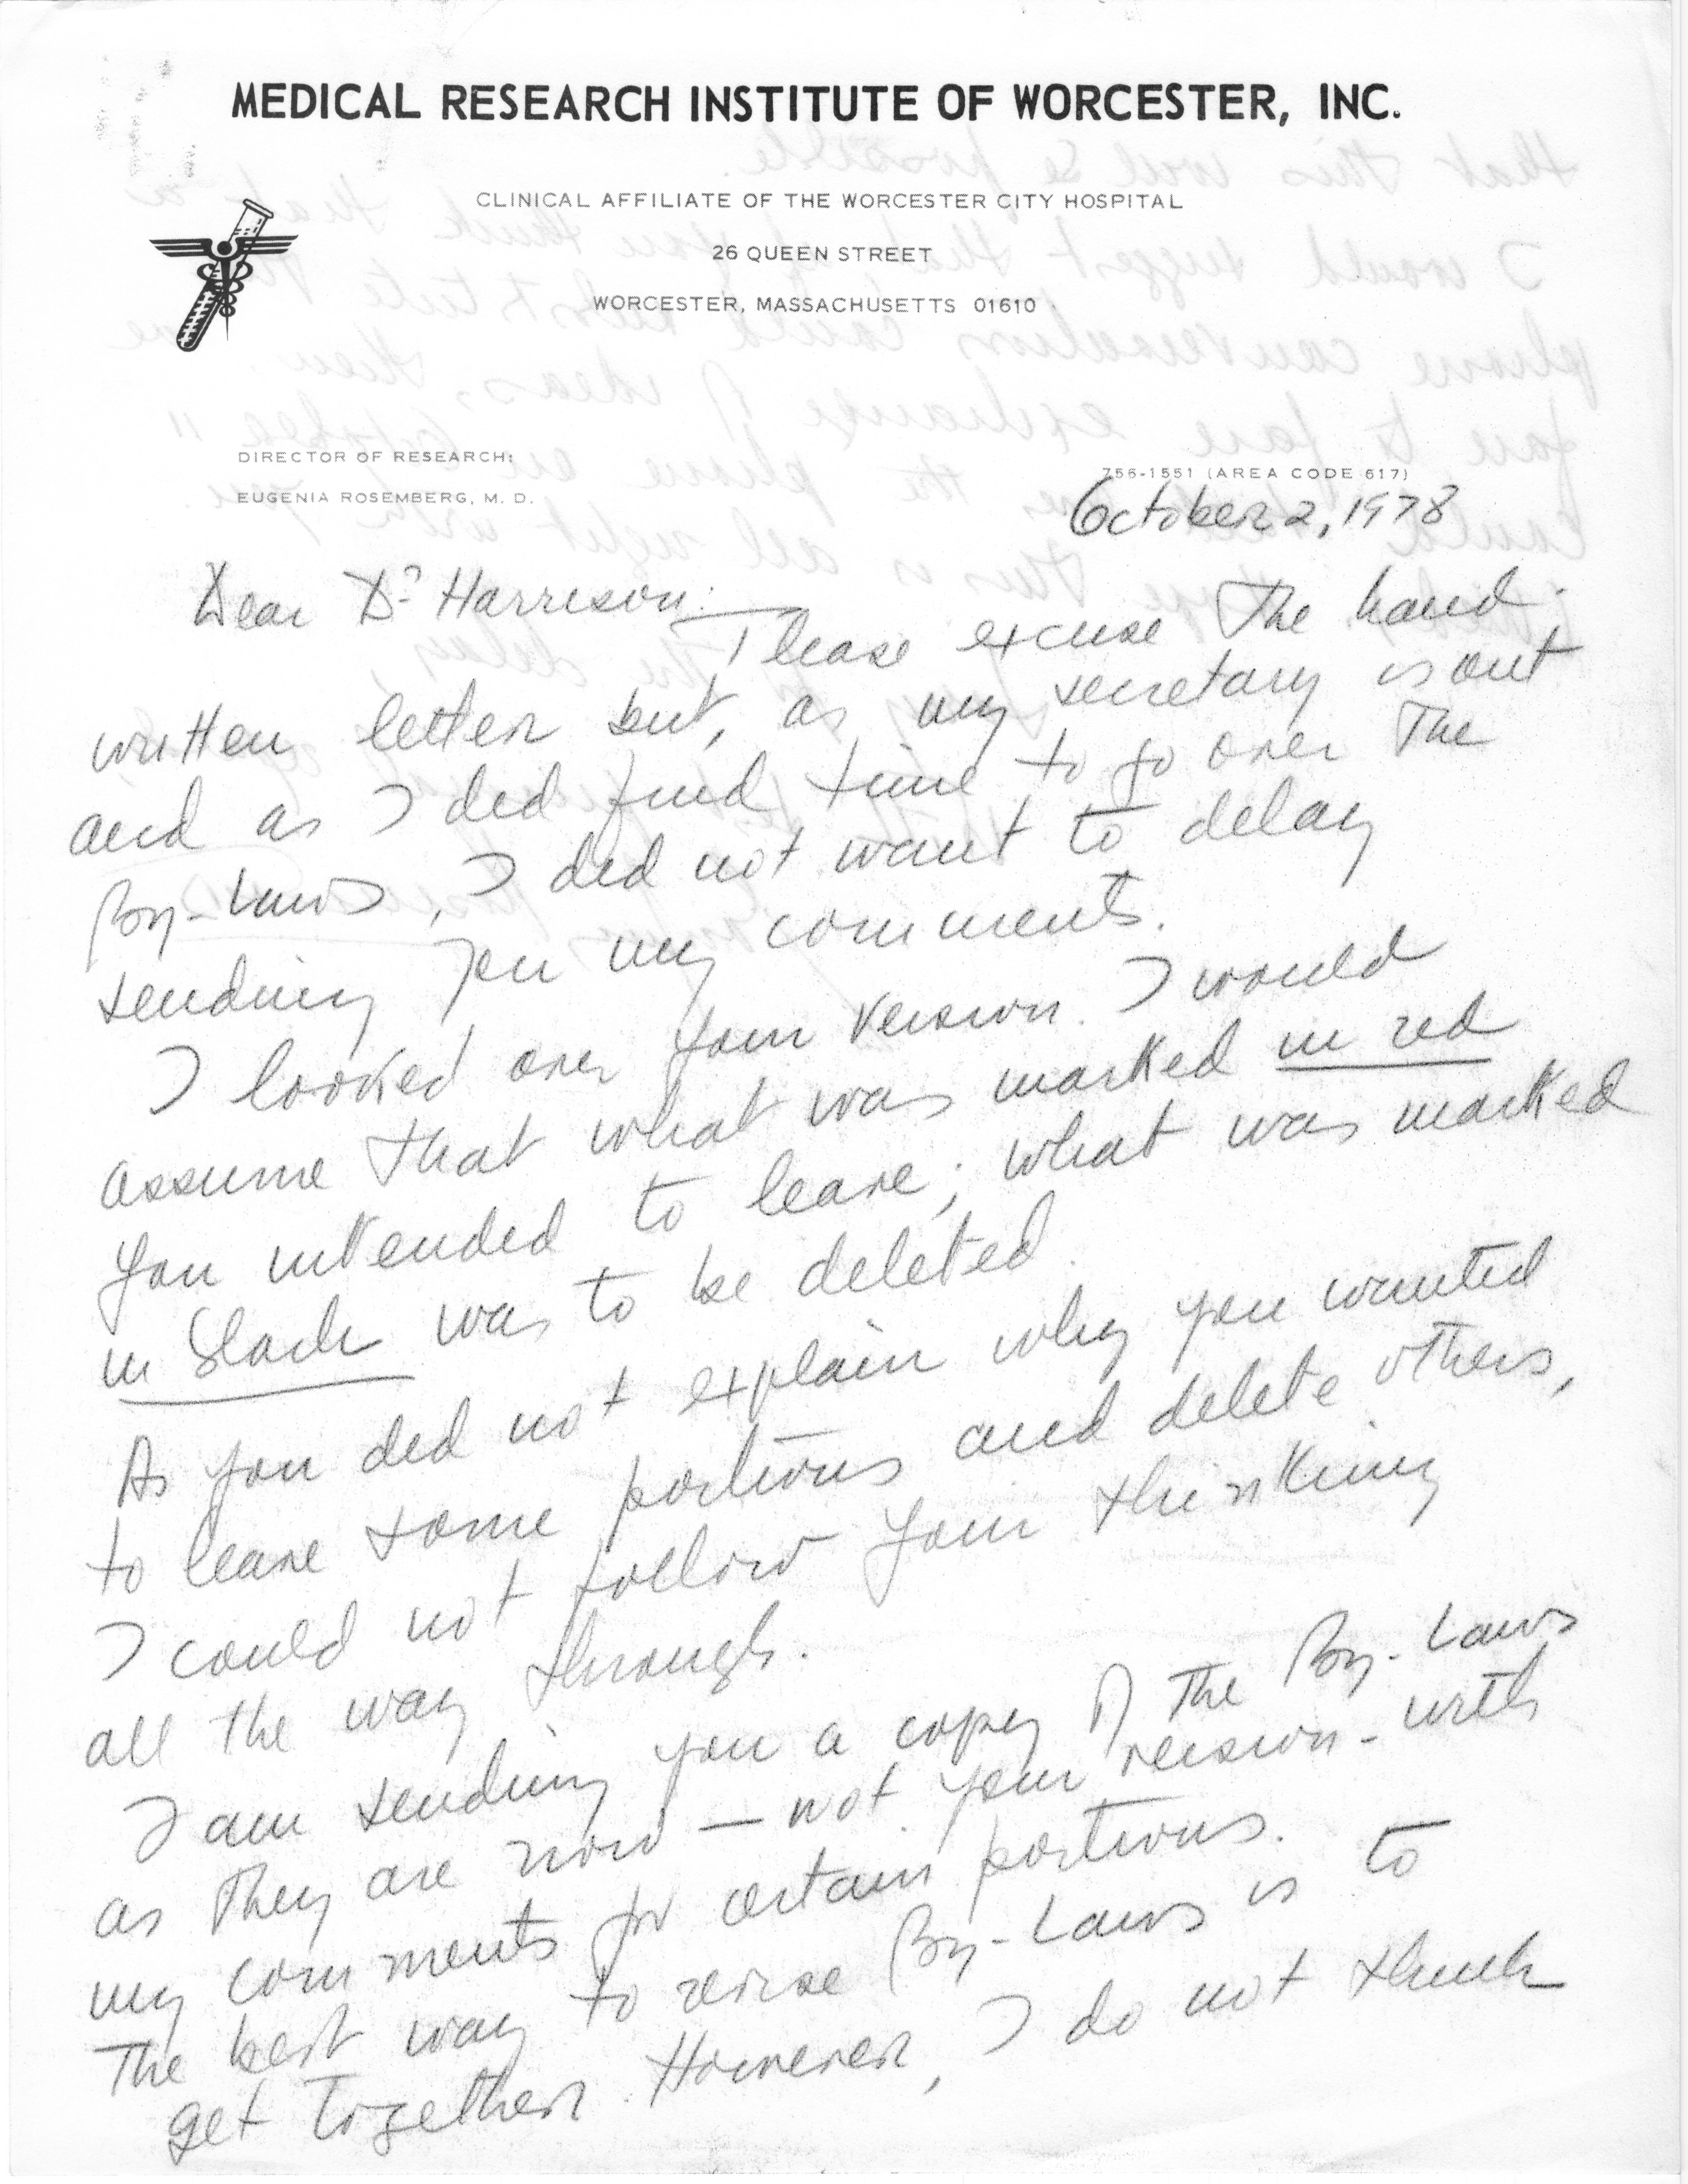 MEDICAL RESEARCH INSTITUTE OF WORCESTER, INC.
CLINICAL AFFILIATE OF THE WORCESTER CITY HOSPITAL
26 QUEEN STREET
WORCESTER, MASSACHUSETTS 01610
DIRECTOR OF RESEARCH:
EUGENIA ROSEMBERG, M. D.
756-1551 (AREA CODE 617)
October 2, 1978
Dear Dr Harrison:
Please excuse the hand-
written letter but, as my secretary is out
and as I did find time to go over the
By-Laws, I did not want to delay
sending you my comments.
I looked over your version. I would
assume that what was marked in red
you intended to leave; what was marked
in black was to be deleted.
As you did not explain why you wanted
to leave some portions and delete others,
I could not follow your thinking
all the way through.
I am sending you a copy of the By-Laws
as they are now — not your version - with
my comments for certain portions.
The best way to revise By-Laws is to
get together. However, I do not think